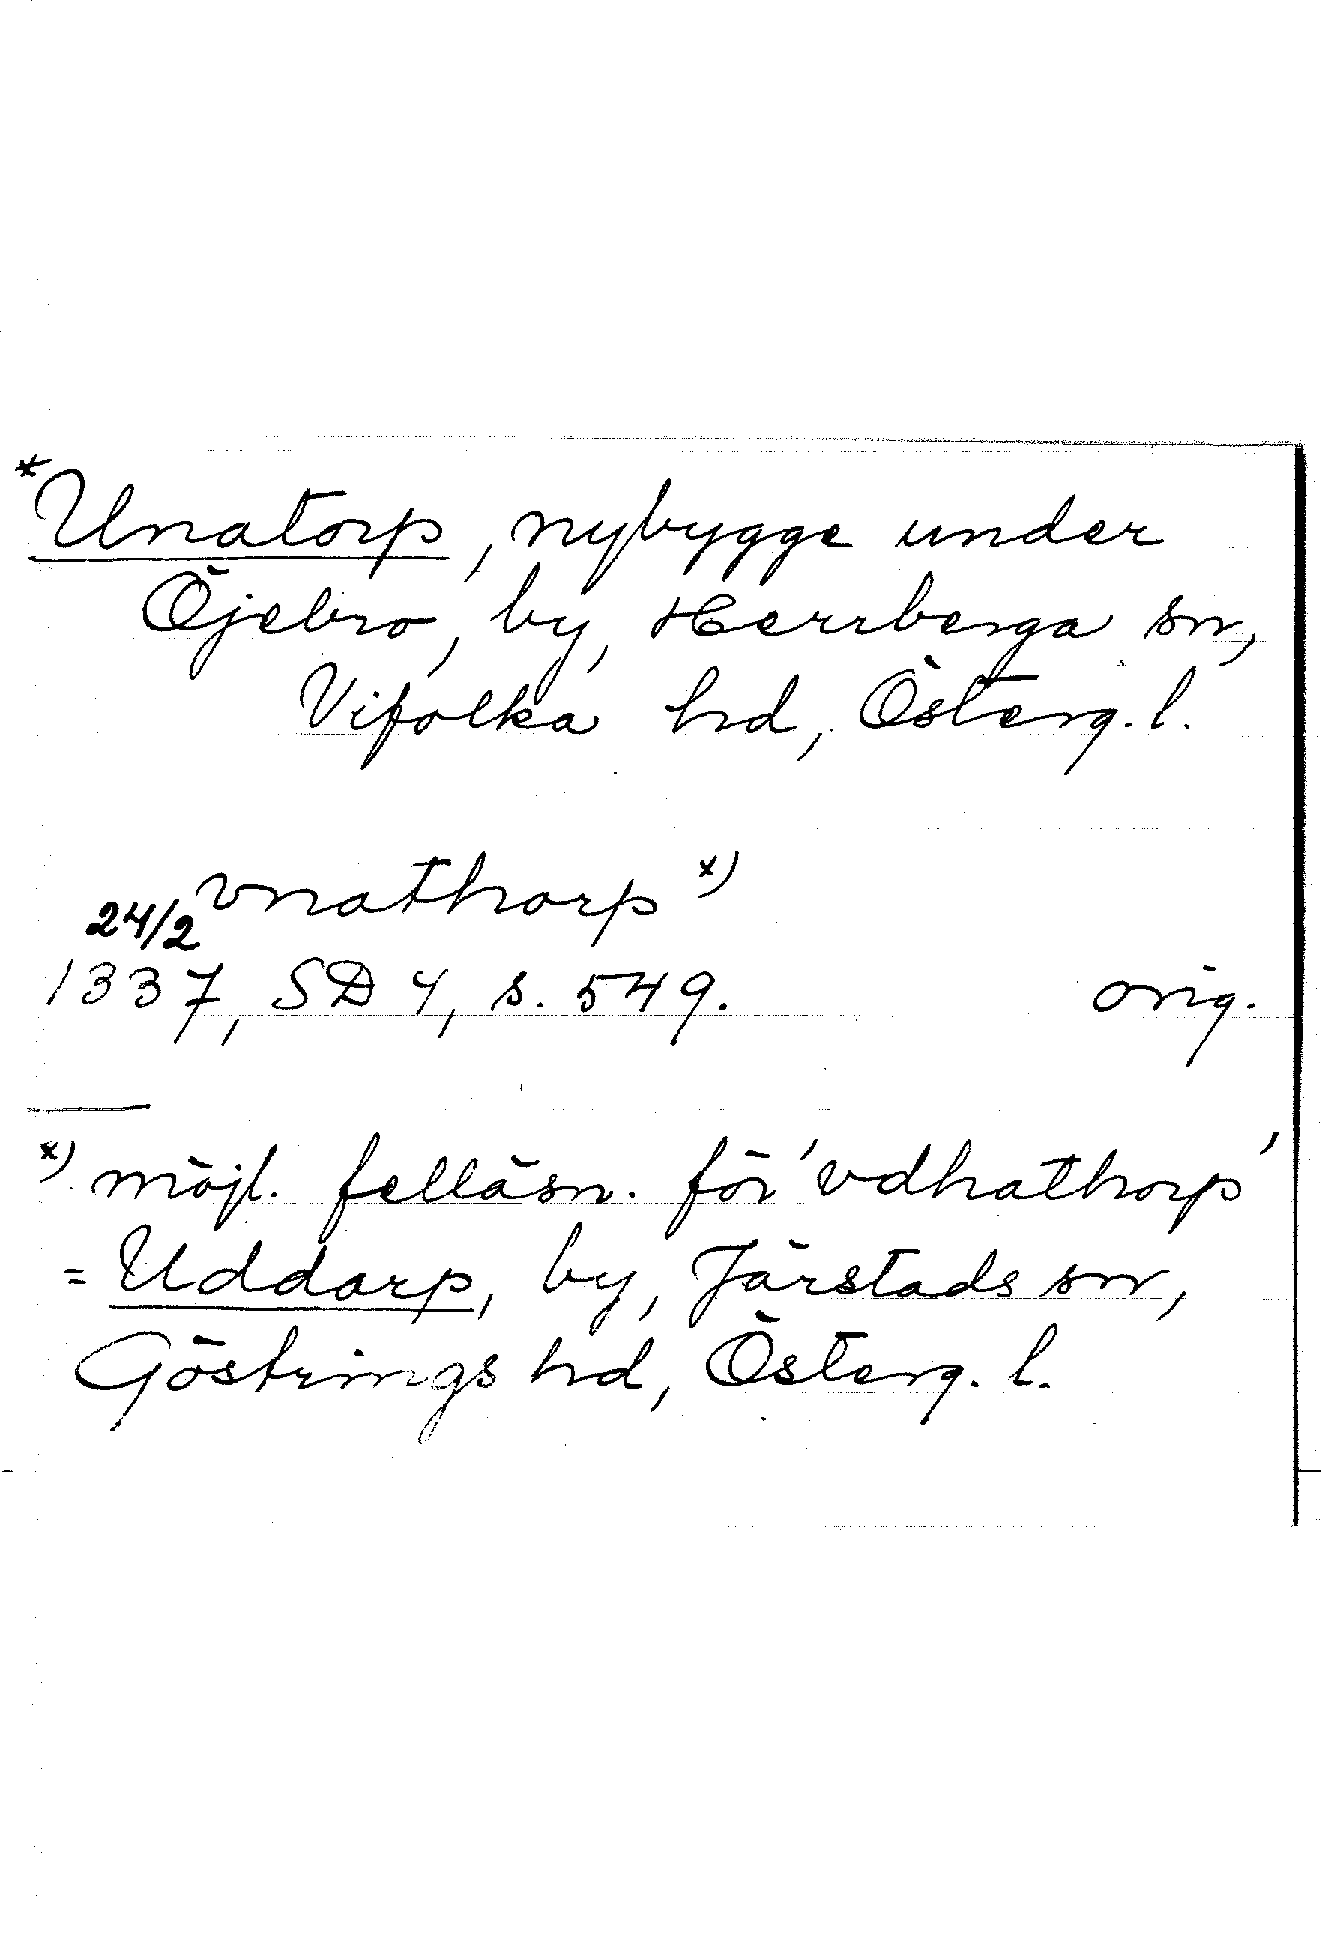 *Unatorp, nybygge under
Öjebro, by, Herrberga sn,
Vifolka hd, Österg. l.
vnathorp x)
24/2
1337, SD 4, s. 549. orig.
x) möjl. felläsn. för 'vdhathorp'
= Uddarp, by, Järstads sn,
Göstrings hd, Österg. l.